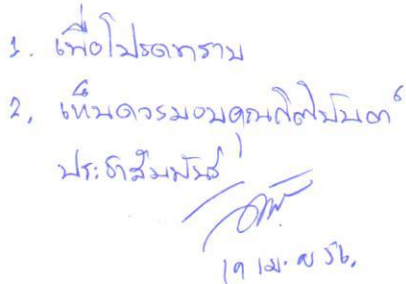 1. เพื่อโปรดทราบ
2. เห็นควรมอบคุณกิตินันต์
ประชาสัมพันธ์
19 เม.ย 56.